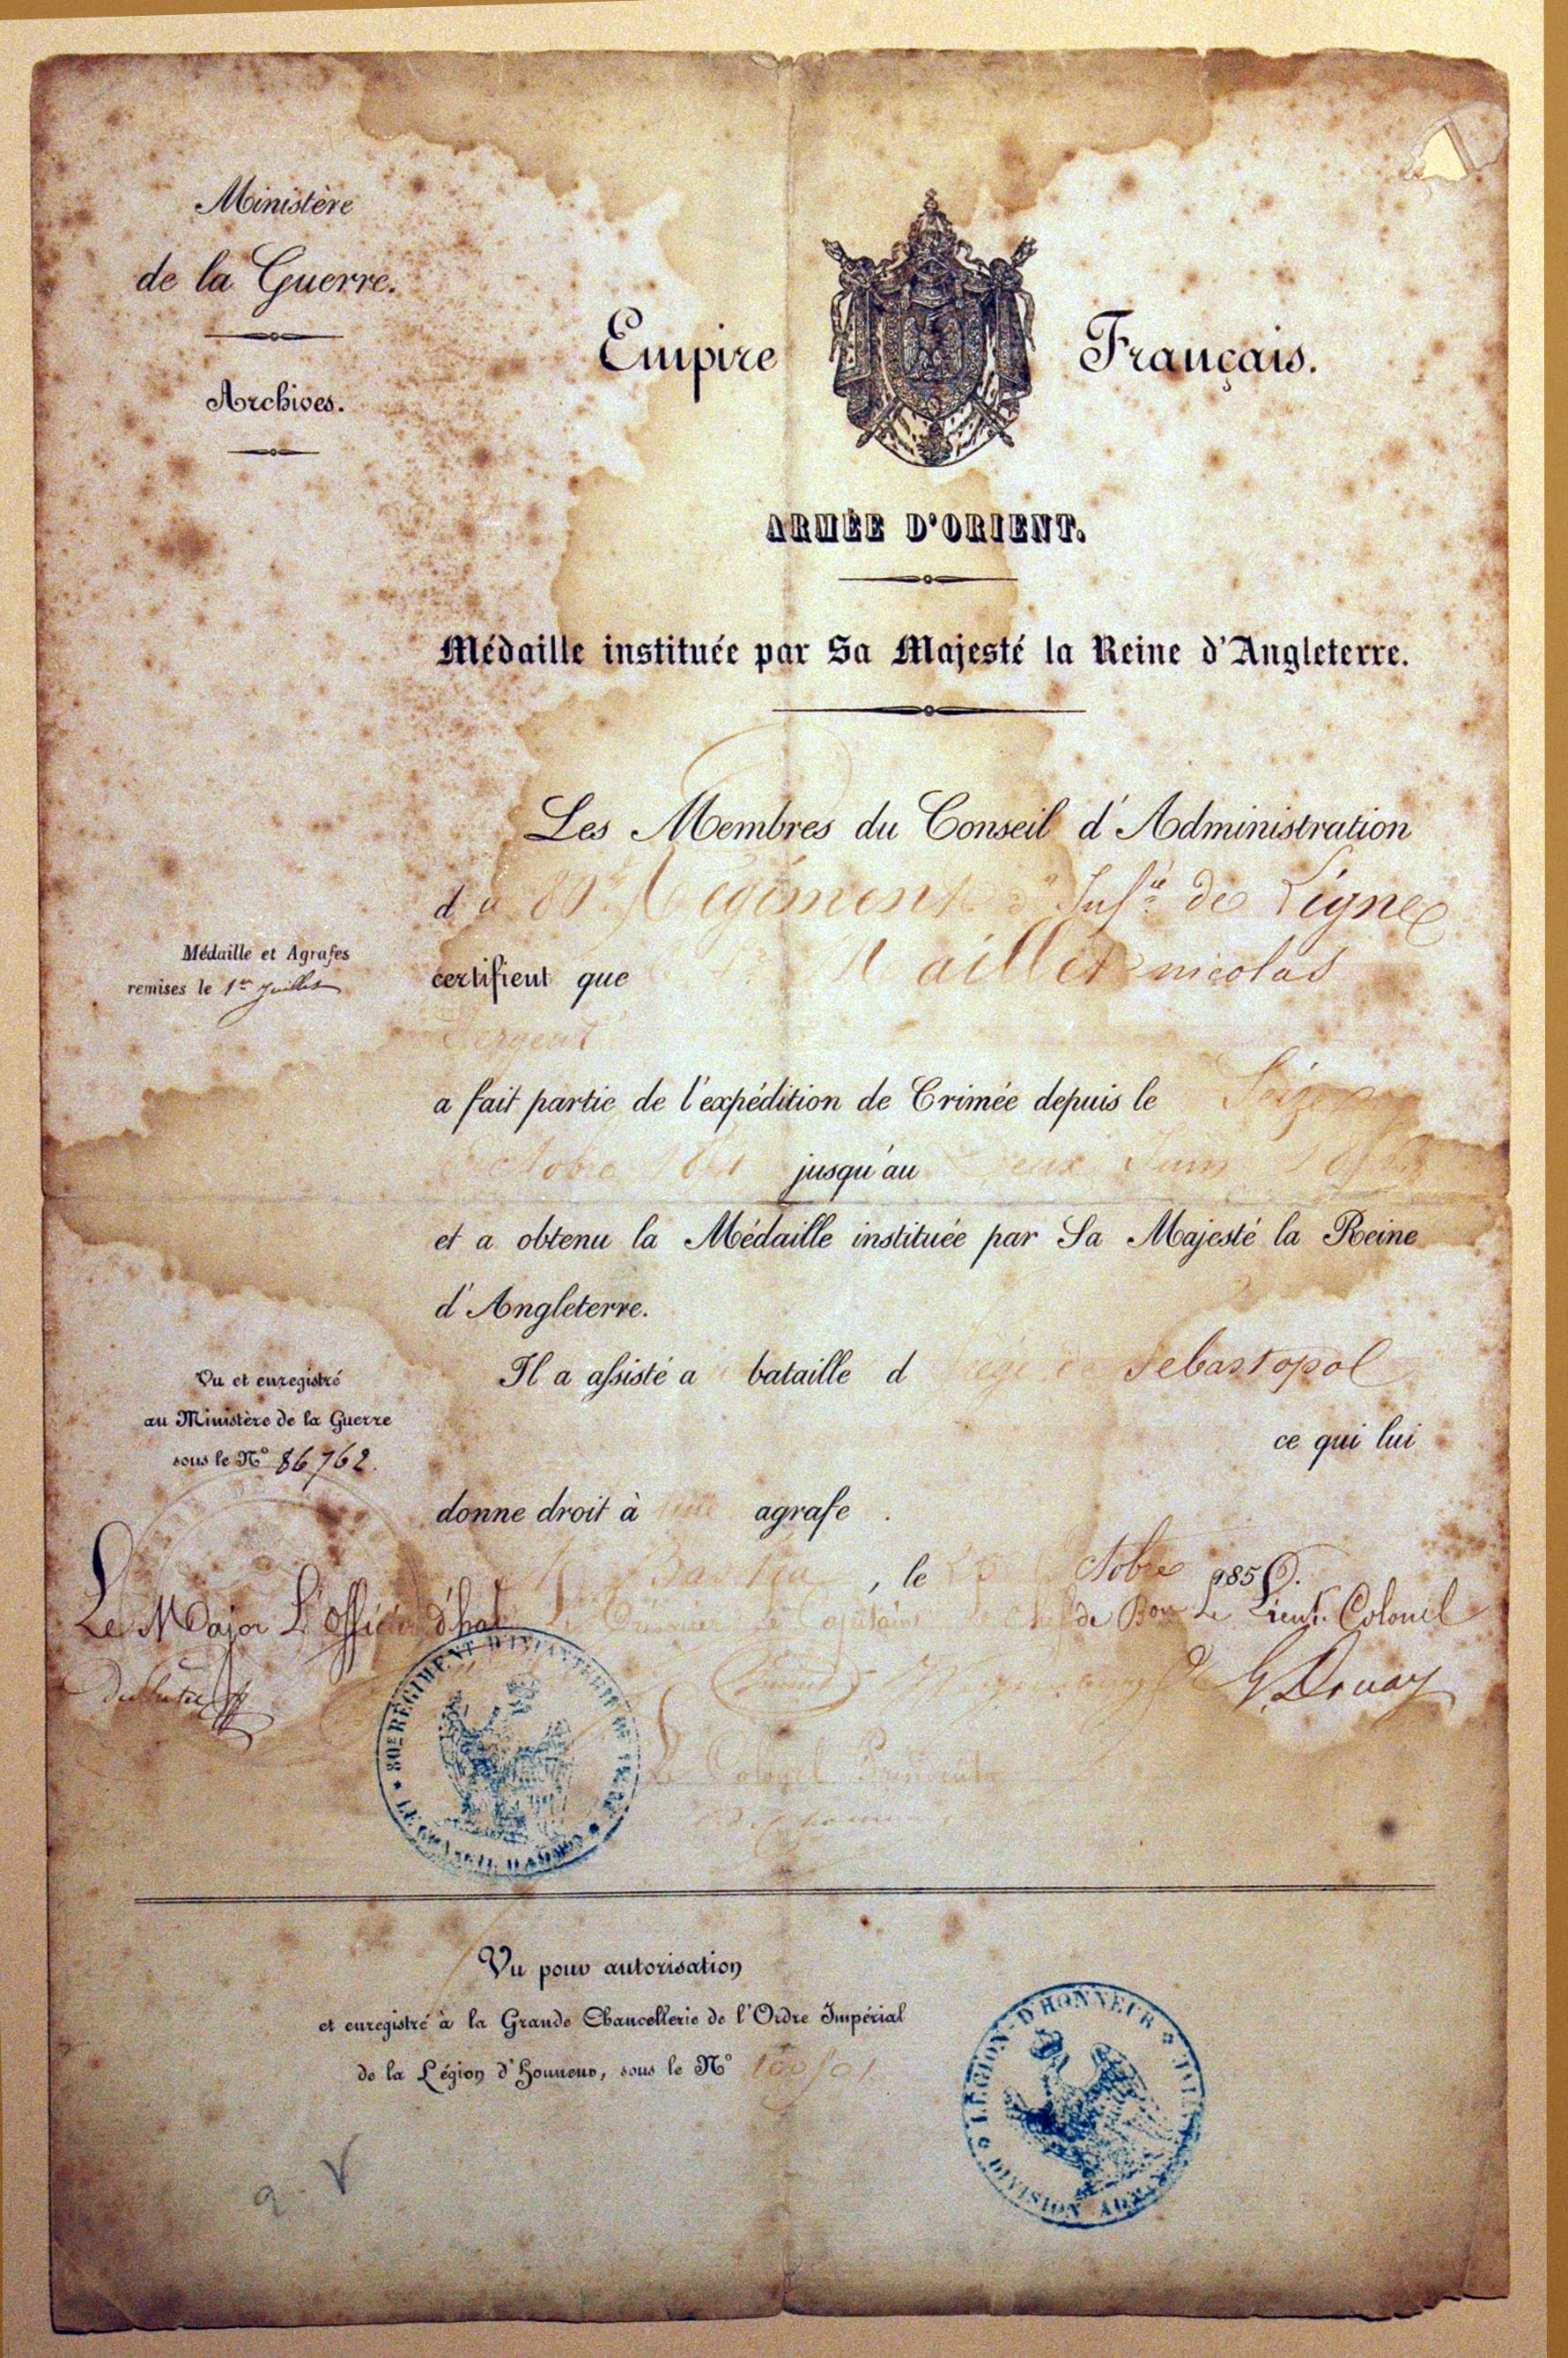 Ministère
de la Guerre.
Archives.
Empire Français.
ARMÉE D'ORIENT.
Médaille instituée par Sa Majesté la Reine d'Angleterre.
Les Membres du Conseil d'Administration
du 80e Régiment d'Infie de Ligne
certifient que Maillet nicolas
Sergent
Médaille et Agrafes
remises le 1er Juillet
a fait partie de l'expédition de Crimée depuis le Seize
Octobre jusqu'au Juin
et a obtenu la Médaille instituée par Sa Majesté la Reine
d'Angleterre.
Il a assisté a bataille d Sebastopol
ce qui lui
donne droit à une agrafe.
Vu et enregistré
au Ministère de la Guerre
sous le No 86762.
Bastia, le 25 Octobre 1856.
Le Major L'Officier d'hal Le Trésorier Le Capitaine Le Chef de Bon Le Lieut. Colonel
G. Douay
Le Colonel
80E RÉGIMENT D'INFANTERIE DE LIGNE
LE CONSEIL D'ADMON
Vu pour autorisation
et enregistré à la Grande Chancellerie de l'Ordre Impérial
de la Légion d'Honneur, sous le No
LÉGION D'HONNEUR
DIVISION